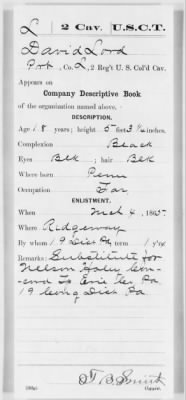 L 2 Cav. U.S.C.T.
David Lord
Pvt, Co. L, 2 Reg't U. S. Col'd Cav.
Appears on
Company Descriptive Book
of the organization named above.
DESCRIPTION.
Age 18 years; height 5 feet 3 ½ inches.
Complexion Black
Eyes Blk; hair Blk
Where born Penn
Occupation Far
ENLISTMENT.
When Mch 4, 1865.
Where Ridgeway
By whom 19 Dist Pa term 1 y'rs
Remarks: Substitute for
Nelson
Erie Co Pa
19 Cong Dist. Pa
Copyist.